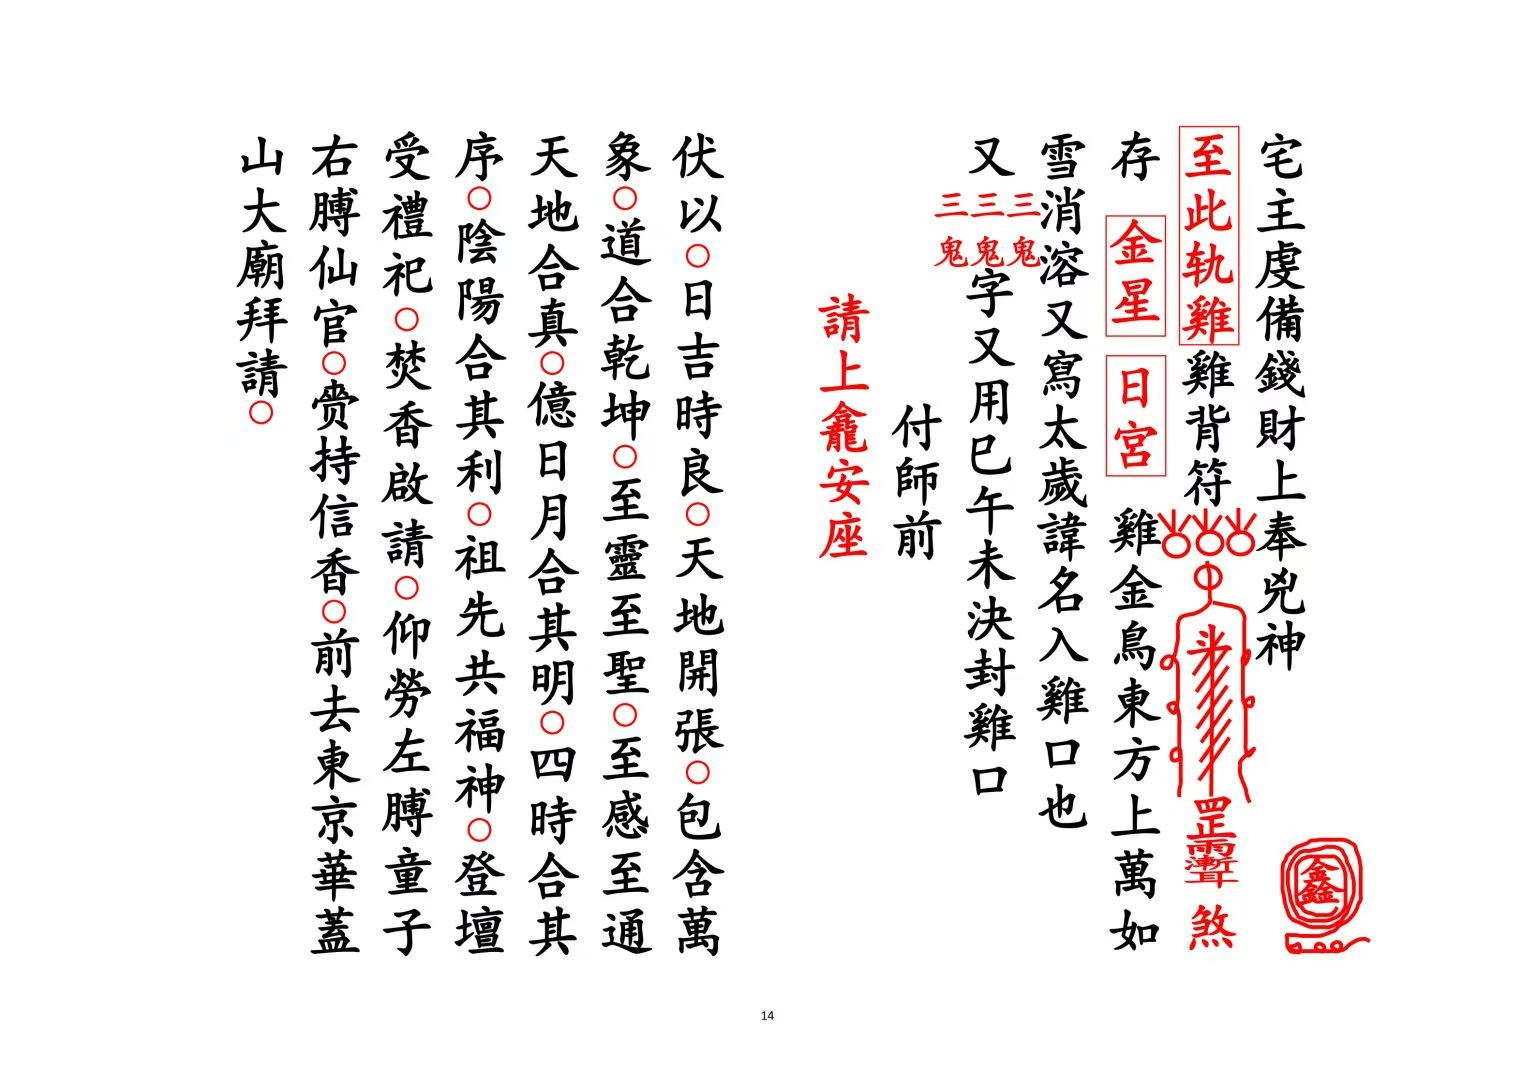 宅主虔備錢財上奉兇神
至此轨雞雞背符
煞
存 金星 日宮 雞金鳥東方上萬如
雪消溶又寫太歲諱名入雞口也
又三鬼三鬼三鬼字又用巳午未決封雞口
付師前
請上龕安座
伏以○日吉時良○天地開張○包含萬
象○道合乾坤○至靈至聖○至感至通
天地合真○億日月合其明○四時合其
序○陰陽合其利○祖先共福神○登壇
受禮祀○焚香啟請○仰勞左膊童子
右膊仙官○赍持信香○前去東京華蓋
山大廟拜請○
14